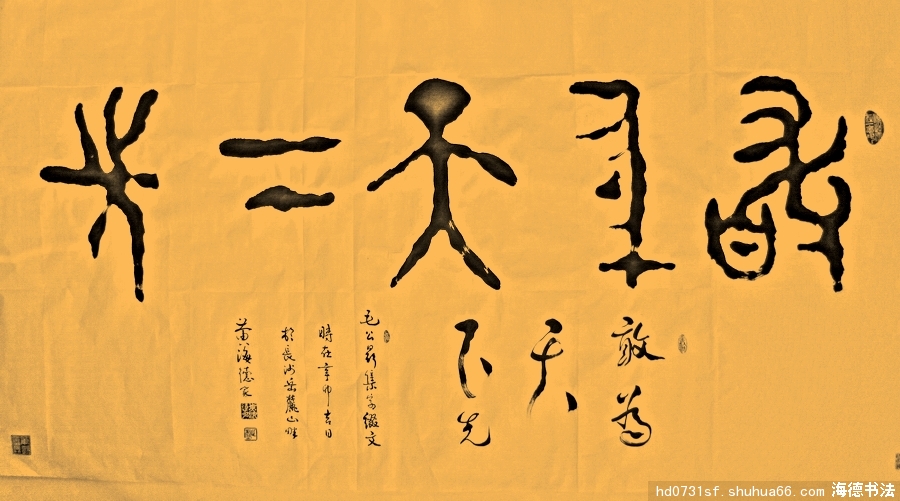 敢為天下先
敢為
天
下先
毛公鼎集字綴文
時在辛卯吉日
於長沙岳麓山畔
海德
hd0731sf.shuhua66.com 海德书法